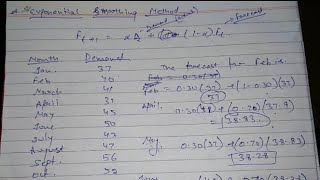 Exponential Smoothing Method
F t+1 = α Dt + (1-α) Ft
forecast
Month Demand
Jan. 37 The forecast for Feb is.
Feb 40
March 41 = 0.30(37) + (1-0.30)(37)
April 37 37
May 45 April. + (0.70)(37.9)
June 50 = 38.83
July 43
August 47 May. 0.30(37) + (0.70)(38.83)
Sept. 56 38.28
Oct. 52